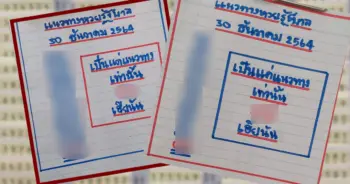 แนวทางหวยรัฐบาล
30 ธันวาคม 2564
เป็นแค่แนวทาง
เท่านั้น
เฮียนัน
แนวทางหวยรัฐบาล
30 ธันวาคม 2564
เป็นแค่แนวทาง
เท่านั้น
เฮียนัน